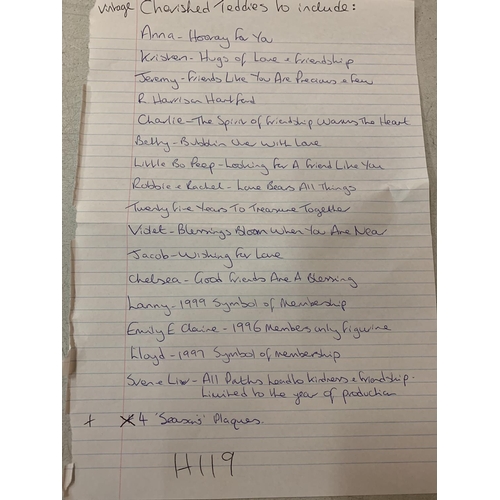 vintage Cherished Teddies to include:
Anna - Hooray For You
Kristen - Hugs of Love & Friendship
Jeremy - Friends Like You Are Precious & Few
R. Harrison Hartford
Charlie - The Spirit of Friendship Warms The Heart
Betty - Bubblin Over With Love
Little Bo Peep - Looking For A Friend Like You
Robbie & Rachel - Love Bears All Things
Twenty Five Years To Treasure Together
Violet - Blessings Bloom When You Are Near
Jacob - Wishing For Love
Chelsea - Good Friends Are A Blessing
Lanny - 1999 Symbol of Membership
Emily E Claire - 1996 Members only figurine
Lloyd - 1997 Symbol of membership
Sven & Liv - All Paths lead to kindness & friendship -
Limited to the year of production
+ 4 'Seasons' Plaques.
H119